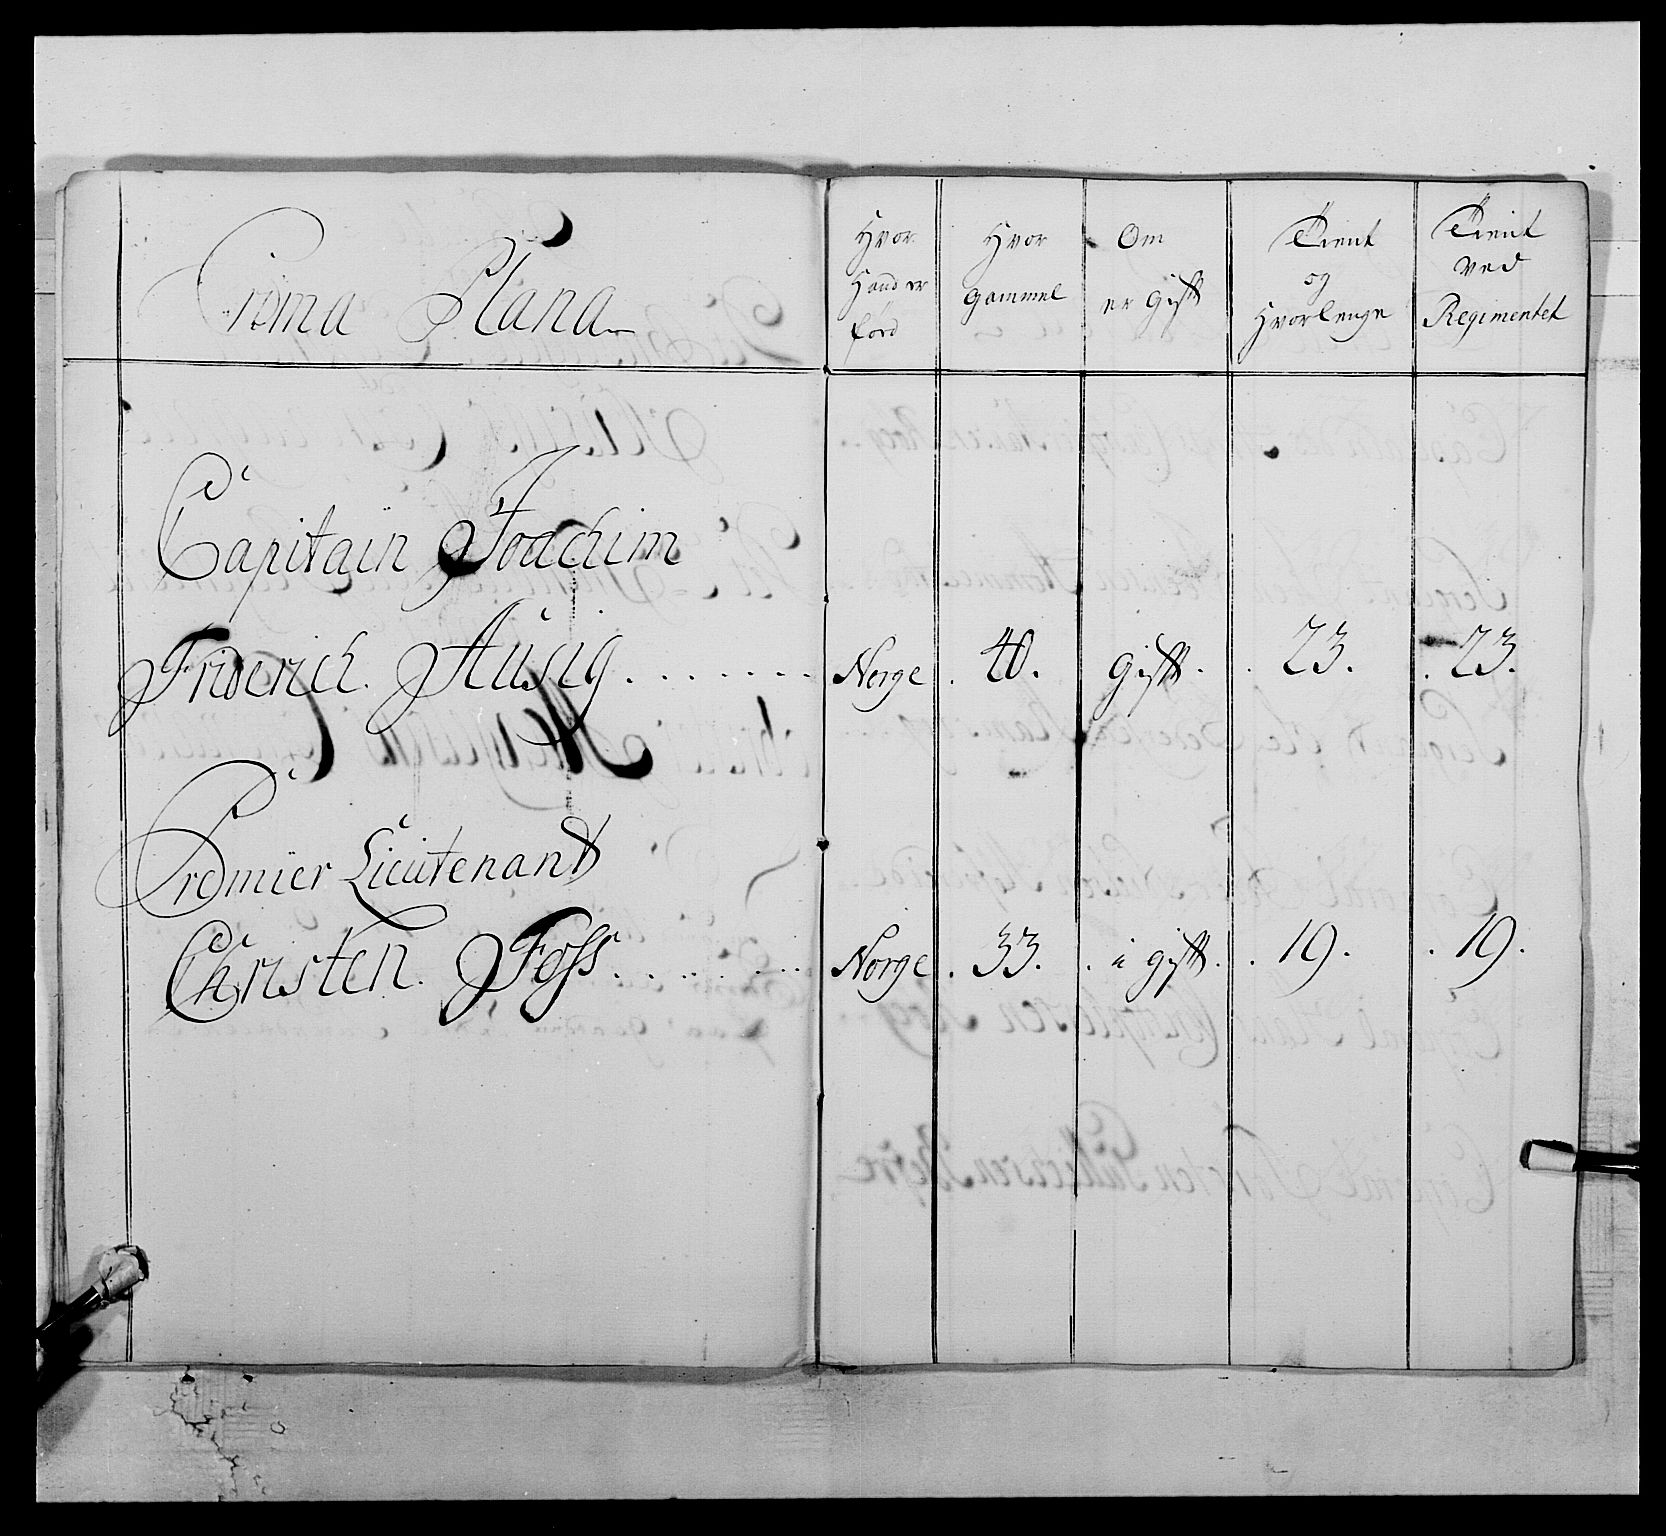 Prima Plana
Hvor
Hand er
förd
Hvor
gammel
Om
er gift
Tient
og
Hvorlenge
Tient
ved
Regimentet
Capitain Joachim
Friderich Ausig . . . . . . . Norge . 40. gift . . 23. . 23.
Premier Lieutenant
Christen Foss . . . . . . . Norge . 33. . u gift . . 19. . 19.